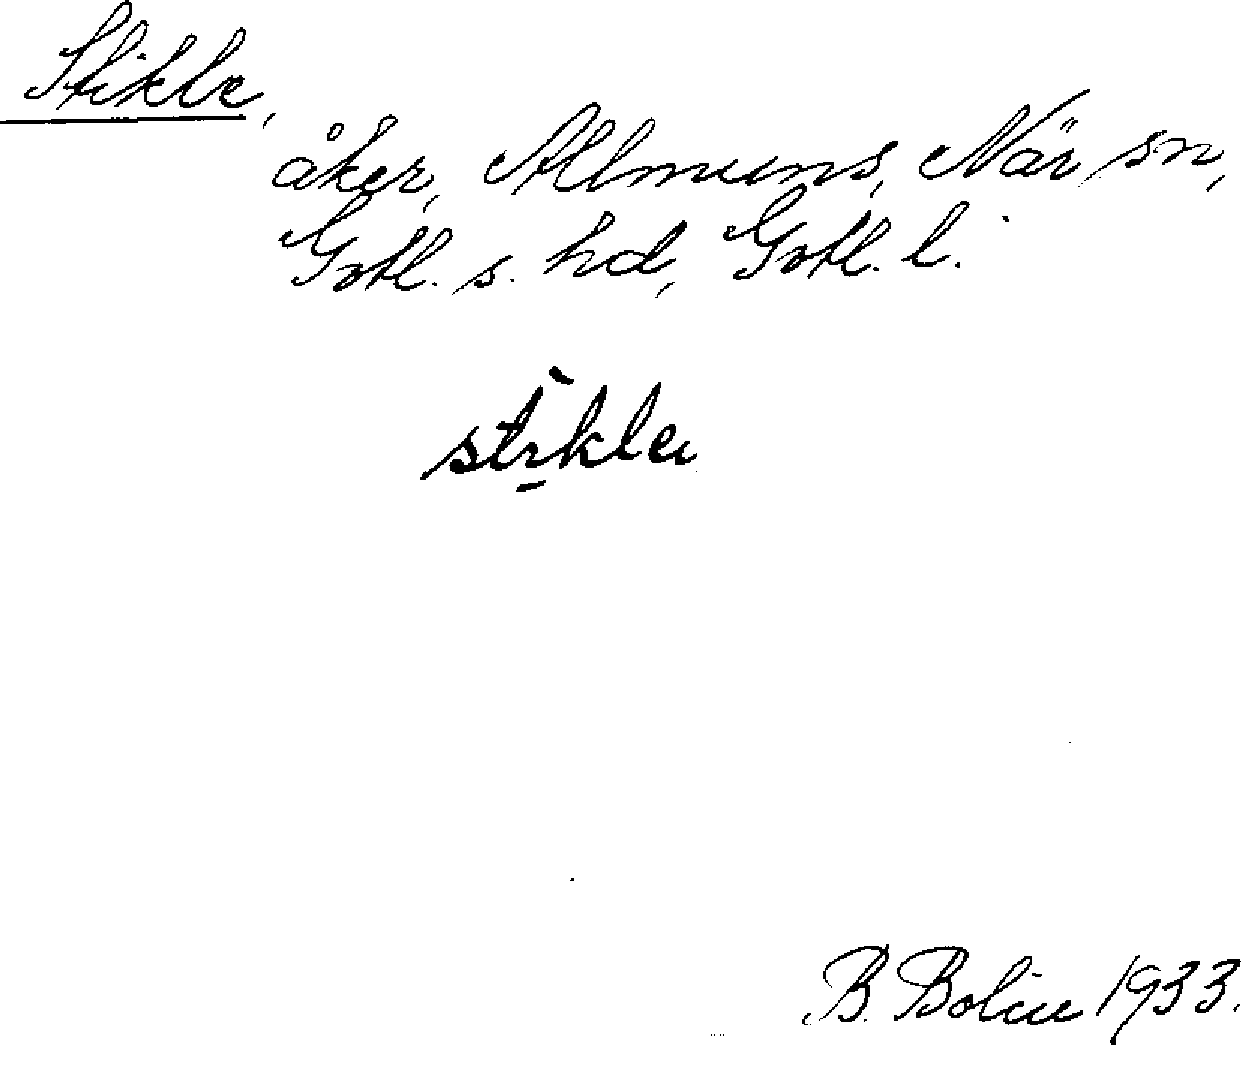 Stikle,
åker, Allmuns, När sn,
Gotl. s. hd, Gotl. l.
stikle
B. Bolin 1933.